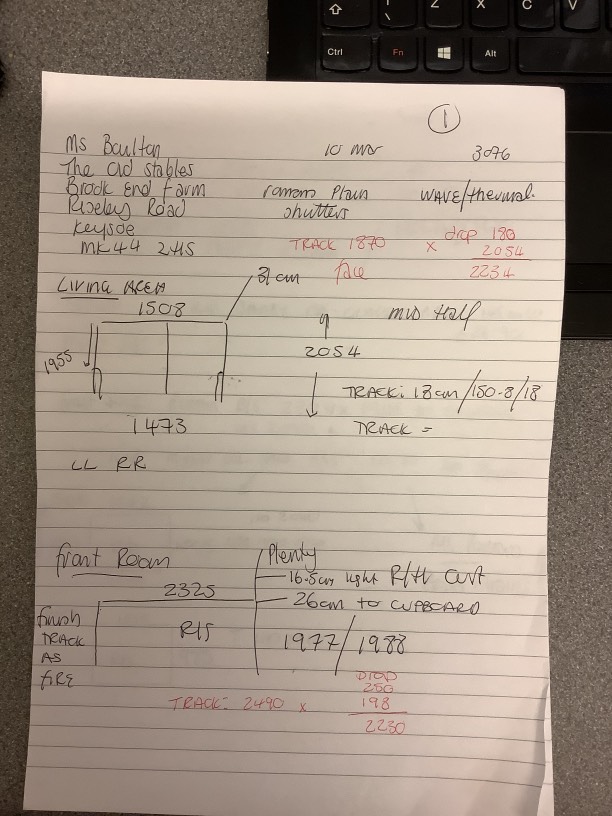 1
Ms Boulton 10 mar 3096
The Old Stables
Brook End Farm romans Plain WAVE/thermal.
Riseley Road shutters
Keysoe TRACK 1870 x drop 180
MK44 2HS face 2054
2234
Living AREA 31cm
1508 mid Half
1955 2054
TRACK: 18cm/150-8/18
1473 TRACK =
LL RR
front Room Plenty
16.5cm light R/H
2325 26cm to CUPBOARD
finish R/S 1977/1988
TRACK
AS
fire DROP
250
TRACK: 2490 x 198
2230
Z X C V
Ctrl Fn Alt